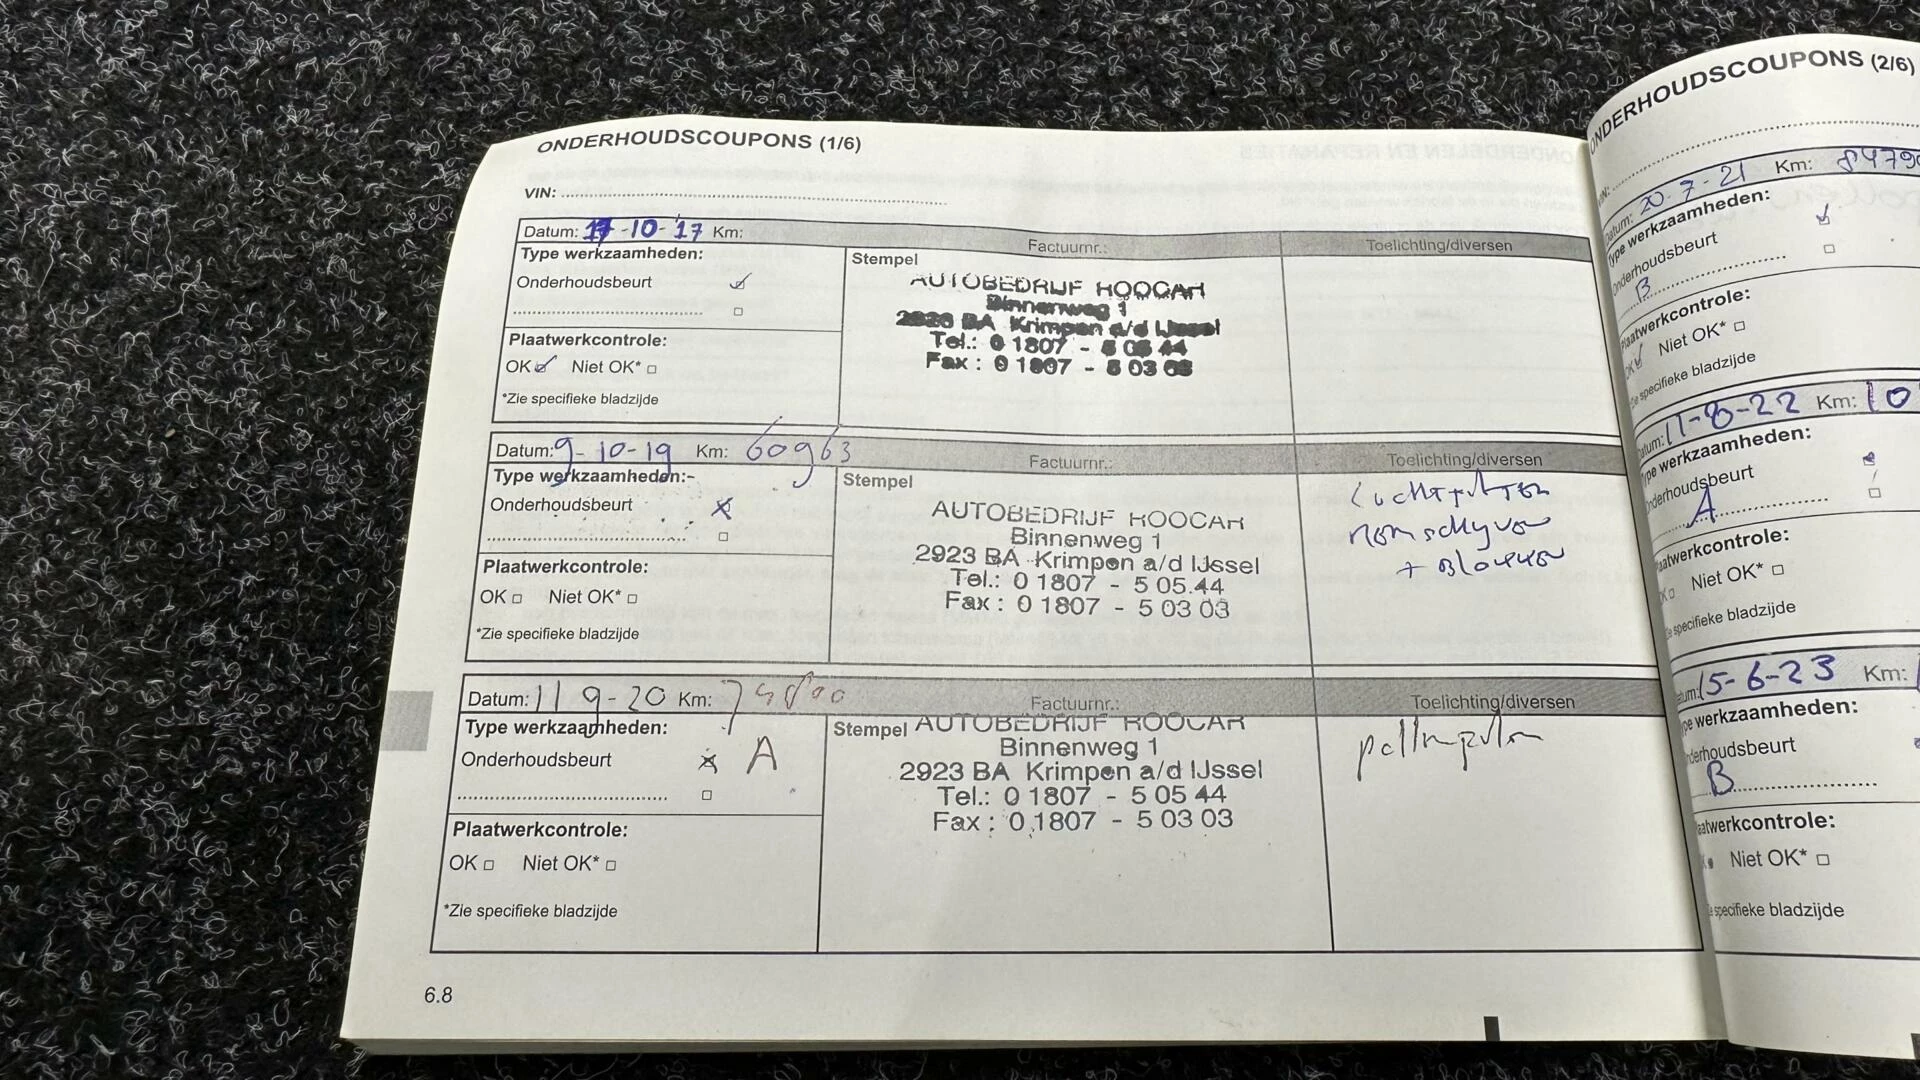 ONDERHOUDSCOUPONS (1/6)
VIN:
Datum: 17-10-'17 Km: Factuurnr.: Toelichting/diversen
Type werkzaamheden:
Onderhoudsbeurt
Stempel
AUTOBEDRIJF HOOCAH
Binnenweg 1
2923 BA Krimpen a/d IJssel
Tel.: 0 1807 - 5 05 44
Fax : 0 1807 - 5 03 03
Plaatwerkcontrole:
OK Niet OK*
*Zie specifieke bladzijde
Datum: 9-10-19 Km: 60963 Factuurnr.: Toelichting/diversen
Type werkzaamheden:
Onderhoudsbeurt
Stempel
AUTOBEDRIJF HOOCAH
Binnenweg 1
2923 BA Krimpen a/d IJssel
Tel.: 0 1807 - 5 05 44
Fax : 0 1807 - 5 03 03
Plaatwerkcontrole:
OK Niet OK*
*Zie specifieke bladzijde
Datum: 11 9-20 Km: Factuurnr.: Toelichting/diversen
Type werkzaamheden:
Onderhoudsbeurt A
Stempel
AUTOBEDRIJF HOOCAH
Binnenweg 1
2923 BA Krimpen a/d IJssel
Tel.: 0 1807 - 5 05 44
Fax : 0 1807 - 5 03 03
Plaatwerkcontrole:
OK Niet OK*
*Zie specifieke bladzijde
6.8
ONDERHOUDSCOUPONS (2/6)
VIN:
Datum: 20-7-21 Km: 8479
Type werkzaamheden:
Onderhoudsbeurt
B
Plaatwerkcontrole:
OK Niet OK*
specifieke bladzijde
Datum: 11-8-22 Km: 10
Type werkzaamheden:
Onderhoudsbeurt
A
Plaatwerkcontrole:
Niet OK*
specifieke bladzijde
Datum: 15-6-23 Km: 1
Type werkzaamheden:
Onderhoudsbeurt
B
Plaatwerkcontrole:
Niet OK*
specifieke bladzijde